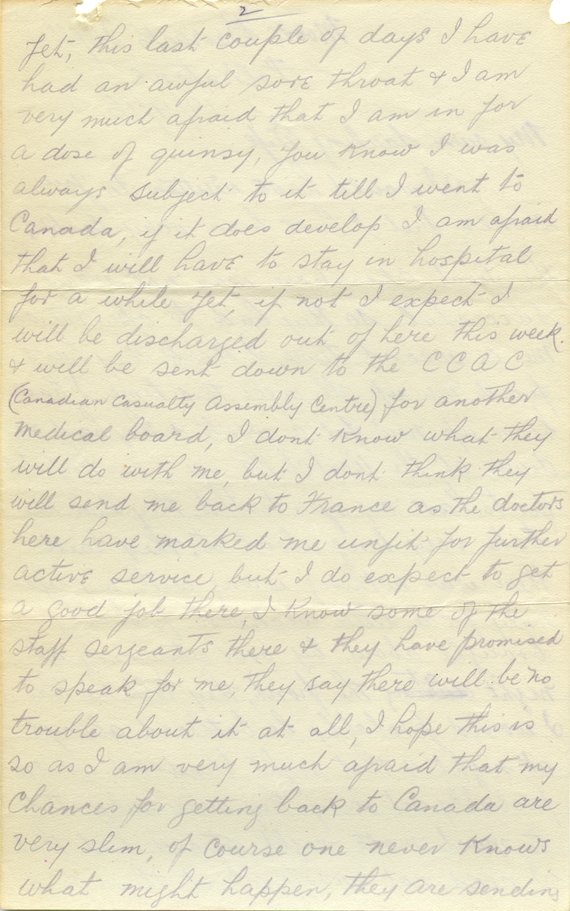 2
yet, this last couple of days I have
had an awful sore throat & I am
very much afraid that I am in for
a dose of quinsy, you know I was
always subject to it till I went to
Canada, if it does develop I am afraid
that I will have to stay in hospital
for a while yet, if not I expect I
will be discharged out of here this week.
& will be sent down to the C C A C
(Canadian Casualty Assembly Centre) for another
medical board, I dont know what they
will do with me, but I dont think they
will send me back to France as the doctors
here have marked me unfit for further
active service, but I do expect to get
a good job there, I know some of the
staff sergeants there & they have promised
to speak for me, they say there will be no
trouble about it at all, I hope this is
so as I am very much afraid that my
chances for getting back to Canada are
very slim, of course one never knows
what might happen, they are sending